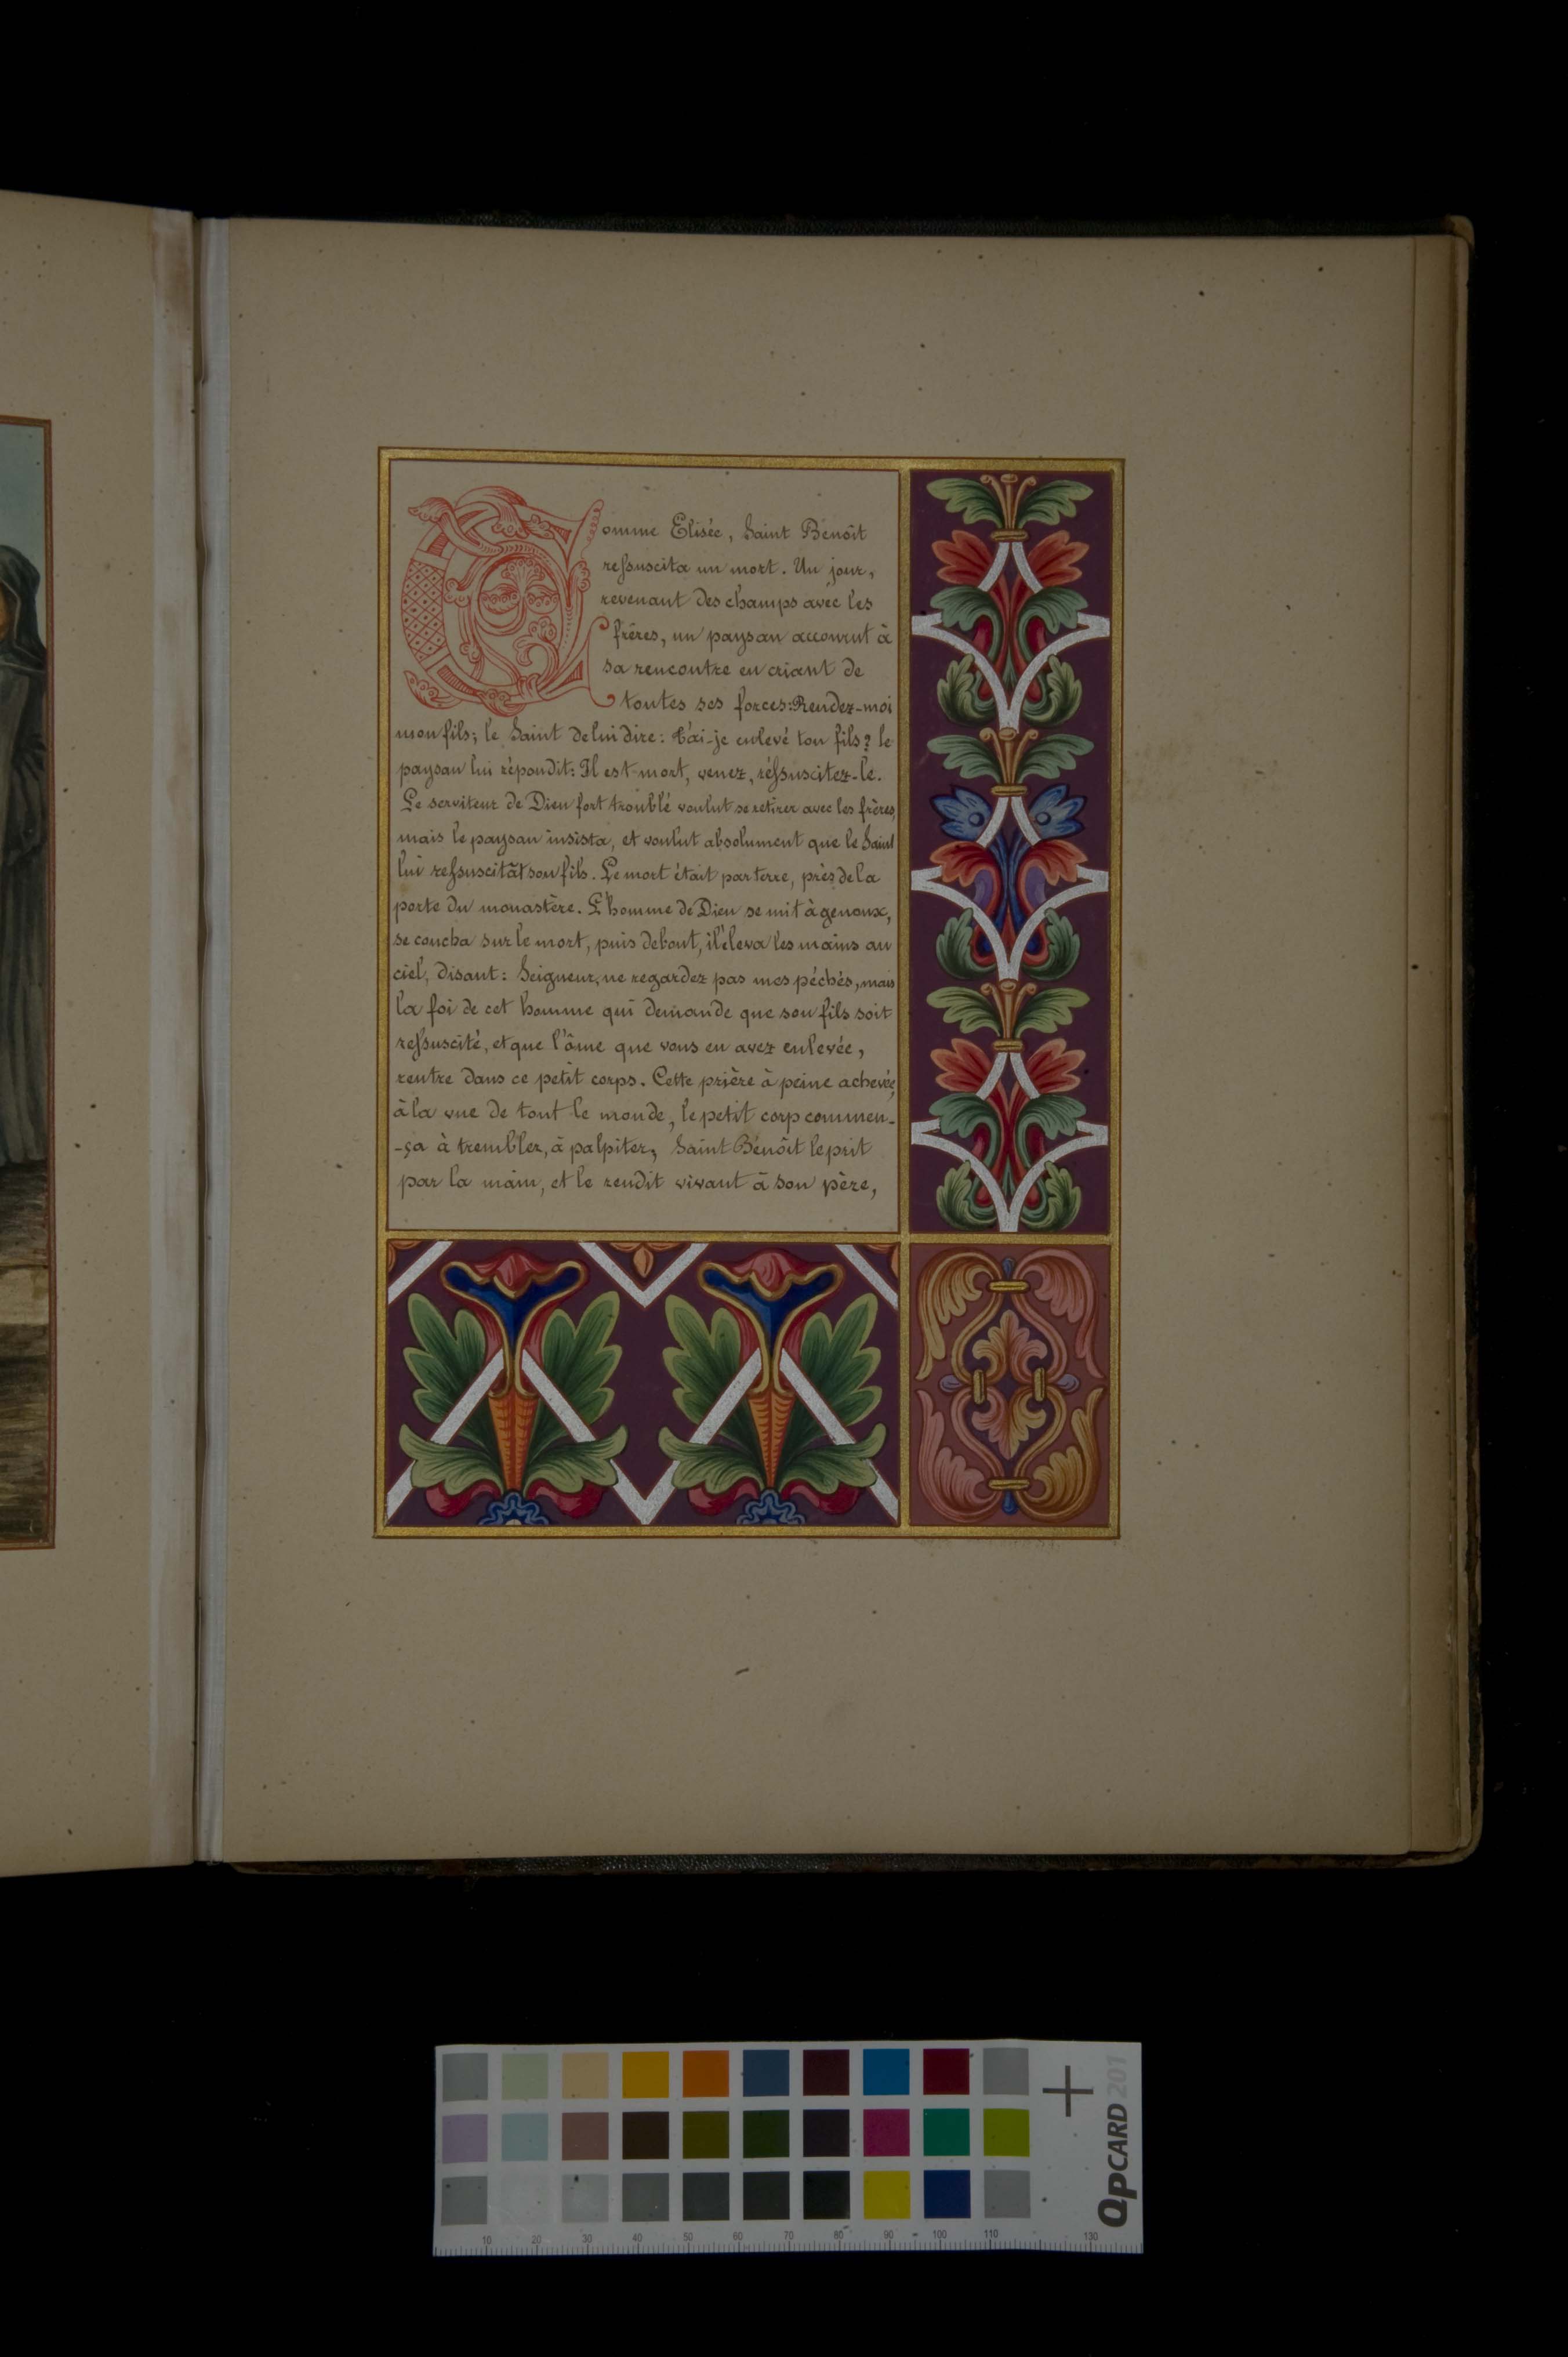 Comme Elisée, Saint Benoît
ressuscita un mort. Un jour,
revenant des champs avec les
frères, un paysan accourut à
sa rencontre en criant de
toutes ses forces: Rendez-moi
mon fils; le Saint de lui dire: T'ai-je enlevé ton fils? le
paysan lui répondit: Il est mort, venez, réssuscitez-le.
Le serviteur de Dieu fort troublé voulut se retirer avec les frères,
mais le paysan insista, et voulut absolument que le Saint
lui ressuscitât son fils. Le mort était par terre, près de la
porte du monastère. L'homme de Dieu se mit à genoux,
se coucha sur le mort, puis debout, il éleva les mains au
ciel, disant: Seigneur, ne regardez pas mes péchés, mais
la foi de cet homme qui demande que son fils soit
ressuscité, et que l'âme que vous en avez enlevée,
rentre dans ce petit corps. Cette prière à peine achevée,
à la vue de tout le monde, le petit corp commen-
-ça à trembler, à palpiter, Saint Benoît le prit
par la main, et le rendit vivant à son père,
QPCARD 201
10 20 30 40 50 60 70 80 90 100 110 130